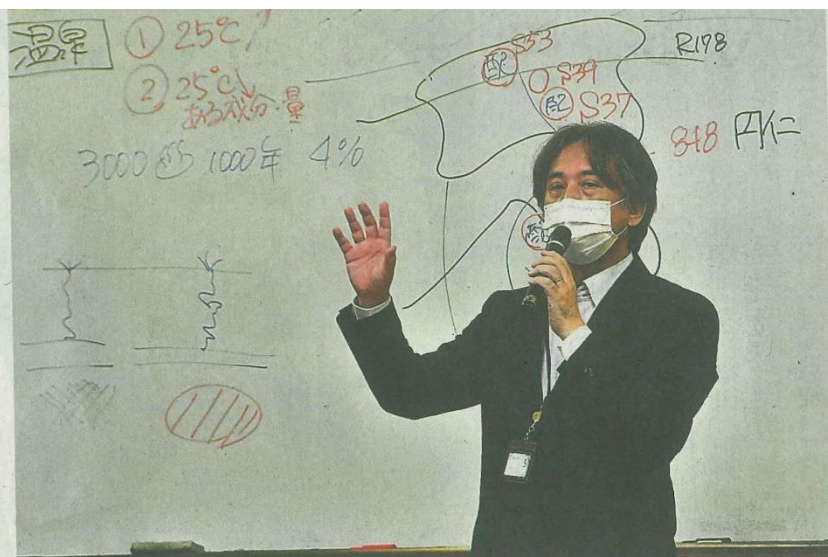 温泉
① 25℃↑
② 25℃↓
ある成分・量
3000 1000年 4%
配 S33
S39
配 S37
R178
848